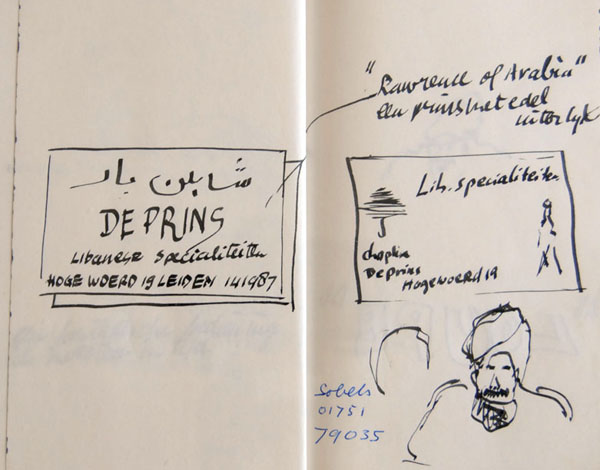 شابلن بار
DE PRINS
Libanese specialiteiten
HOGE WOERD 19 LEIDEN 141987
"Lawrence of Arabia"
een prins met edel
uiterlyk
Lib. specialiteiten
chaplin
De prins
Hogewoerd 19
Sobels
01751
79035